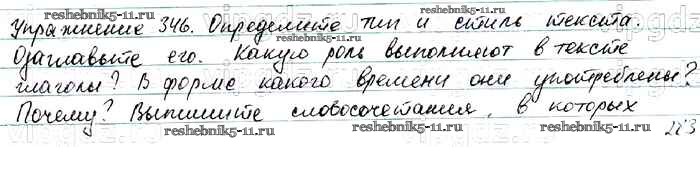 Упражнение 346. Определите тип и стиль текста.
Озаглавьте его. Какую роль выполняют в тексте
глаголы? В форме какого времени они употреблены?
Почему? Выпишите словосочетания, в которых
223
reshebnik5-11.ru
reshebnik5-11.ru
reshebnik5-11.ru
reshebnik5-11.ru
reshebnik5-11.ru
reshebnik5-11.ru